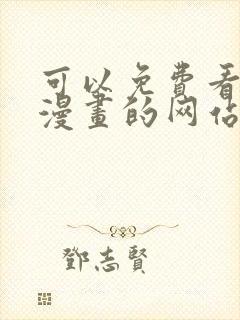 可以免费看
漫畫的网佔
鄧志賢